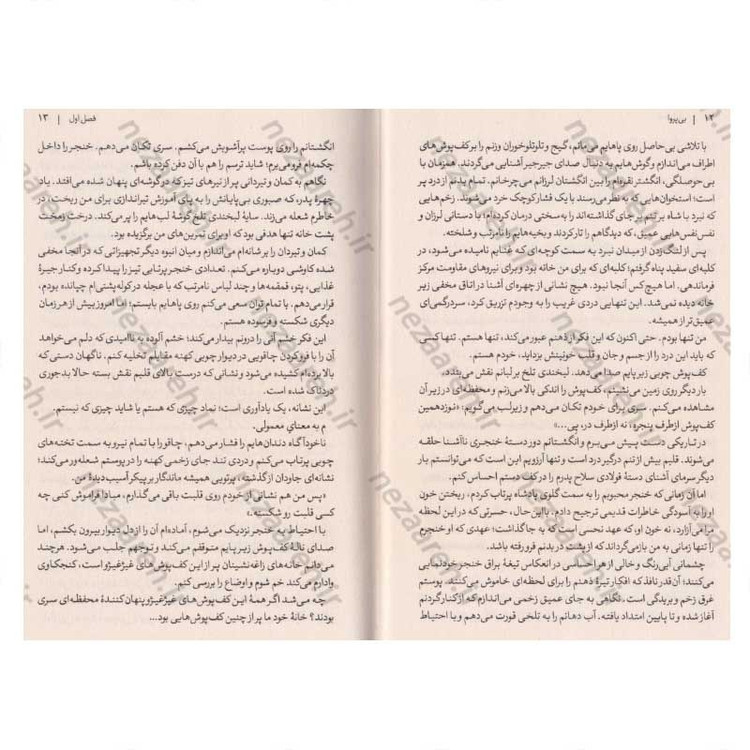 ۱۲ | بی‌پروا
با تلاشی بی‌حاصل روی پاهایم می‌مانم، گیج و تلوتلوخوران وزنم را بر کف‌پوش‌های
اطراف می‌اندازم و گوش‌هایم به دنبال صدای جیرجیر آشنایی می‌گردند. همزمان با
بی‌حوصلگی، انگشتر نقره‌ام را بین انگشتان لرزانم می‌چرخانم. تمام بدنم از درد پر
است؛ استخوان‌هایی که به نظر می‌رسند با یک فشار کوچک خرد می‌شوند. زخم‌هایی
که نبرد با شاه بر تنم بر جای گذاشته‌اند را به سختی درمان کرده‌ام؛ با دستانی لرزان و
نفس‌نفس‌هایی عمیق، که دیدگاهم را تار کردند و بخیه‌هایم را نامرتب و شلخته.
پس از لنگ‌زدن از میدان نبرد به سمت کوچه‌ای که غنایم نامیده می‌شود، در
کلبه‌ای سفید پناه گرفتم؛ کلبه‌ای که برای من خانه بود و برای نیروهای مقاومت مرکز
فرماندهی. اما هیچ‌کس آنجا نبود. هیچ نشانی از چهره‌ای آشنا در اتاق مخفی زیر
خانه دیده نمی‌شد. این تنهایی دردی غریب را به وجودم تزریق کرد، سردرگمی‌ای
عمیق‌تر از همیشه.
من تنها بودم. حتی اکنون که این فکر از ذهنم عبور می‌کند، تنها هستم. تنها کسی
که باید این درد را از جسم و جان و قلب خونینش بزداید، خودم هستم.
کف‌پوش چوبی زیر پایم صدا می‌دهد. لبخندی تلخ بر لبانم نقش می‌بندد.
بار دیگر روی زمین می‌نشینم، کف‌پوش را اندکی بالا می‌زنم و محفظه‌ای در زیر آن
مشاهده می‌کنم. سری برای خودم تکان می‌دهم و زیر لب می‌گویم: «نوزدهمین
کف‌پوش از طرف پنجره، نه از طرف در، پِی...»
در تاریکی دست پیش می‌برم و انگشتانم دور دستهٔ خنجری ناآشنا حلقه
می‌شوند. قلبم بیش از تنم درگیر درد است و تنها آرزویم این است که می‌توانستم بار
دیگر سرمای آشنای دستهٔ فولادی سلاح پدرم را در کف دستم احساس کنم.
اما آن زمانی که خنجر محبوبم را به سمت گلوی پادشاه پرتاب کردم، ریختن خون
او را به آسودگی خاطرات قدیمی ترجیح دادم. با این‌حال، حسرتی که در این لحظه
مرا می‌آزارد، نه خون او، که عهد نحسی است که به جا گذاشت؛ عهدی که او خنجرم
را تنها زمانی به من بازمی‌گرداند که از پشت در بدنم فرو رفته باشد.
چشمانی آبی‌رنگ و خالی از هر احساسی در انعکاس تیغهٔ براق خنجر خودنمایی
می‌کنند؛ آن‌قدر نافذ که افکار تیرهٔ ذهنم را برای لحظه‌ای خاموش می‌کنند. پوستم
غرق زخم و بریدگی است. نگاهی به جای عمیق زخمی می‌اندازم که از کنار گردنم
آغاز شده و تا پایین امتداد یافته. آب دهانم را به تلخی قورت می‌دهم و با احتیاط
فصل اول | ۱۳
انگشتانم را روی پوست پرآشوبش می‌کشم. سری تکان می‌دهم. خنجر را داخل
چکمه‌ام فرو می‌برم؛ شاید ترسم را هم با آن دفن کرده باشم.
نگاهم به کمان و تیردانی پر از تیرهای تیز که در گوشه‌ای پنهان شده می‌افتد. یاد
چهرهٔ پدر، که صبوری بی‌پایانش را به پای آموزش تیراندازی برای من ریخت، در
خاطرم شعله می‌زند. سایهٔ لبخندی تلخ گوشهٔ لب‌هایم را پر می‌کند. درخت زمخت
پشت خانه تنها هدفی بود که او برای تمرین‌های من برگزیده بود.
کمان و تیردان را بر شانه‌ام می‌اندازم و میان انبوه دیگر تجهیزاتی که در آنجا مخفی
شده کاوشی دوباره می‌کنم. تعدادی خنجر پرتابی تیز را پیدا کرده و کنار جیرهٔ
غذایی، پتو، قمقمه‌ها و چند لباس نامرتب که با عجله در کوله‌پشتی‌ام چپانده بودم،
قرار می‌دهم. با تمام توان سعی می‌کنم روی پاهایم بایستم؛ اما امروز بیش از هر زمان
دیگری شکسته و فرسوده هستم.
این فکر خشم آنی را درونم بیدار می‌کند؛ خشم آلوده به ناامیدی که دلم می‌خواهد
آن را با فرو کردن چاقویی در دیوار چوبی کهنه مقابلم تخلیه کنم. ناگهان دستی که
بالا برده‌ام کشیده می‌شود و نشانی که درست بالای قلبم نقش بسته حالا بدجوری
دردناک شده است.
این نشانه، یک یادآوری است؛ نماد چیزی که هستم یا شاید چیزی که نیستم.
م به معنایِ معمولی.
ناخودآگاه دندان‌هایم را فشار می‌دهم، چاقو را با تمام نیرو به سمت تخته‌های
چوبی پرتاب می‌کنم و دردی تند جای زخمی کهنه را در پوستم شعله‌ور می‌کند؛
نشانه‌ای جاودان از گذشته، پرتویی همیشه ماندگار بر پیکر آسیب دیدهٔ من.
«پس من هم نشانی از خودم روی قلبت باقی می‌گذارم، مبادا فراموش کنی چه
کسی قلبت رو شکسته.»
با احتیاط به خنجر نزدیک می‌شوم، آماده‌ام آن را از دل دیوار بیرون بکشم، اما
صدای نالهٔ کف‌پوش زیر پایم متوقفم می‌کند و توجهم جلب می‌شود. هرچند
می‌دانم خانه‌های زاغه‌نشینان پر از این کف‌پوش‌های غیژغیژو است، کنجکاوی
وادارم می‌کند خم شوم و اوضاع را بررسی کنم.
چه می‌شد اگر همهٔ این کف‌پوش‌های غیژغیژو پنهان‌کنندهٔ محفظه‌ای سری
بودند؟ خانهٔ خود ما پر از چنین کف‌پوش‌هایی بود...
nezaareh.ir